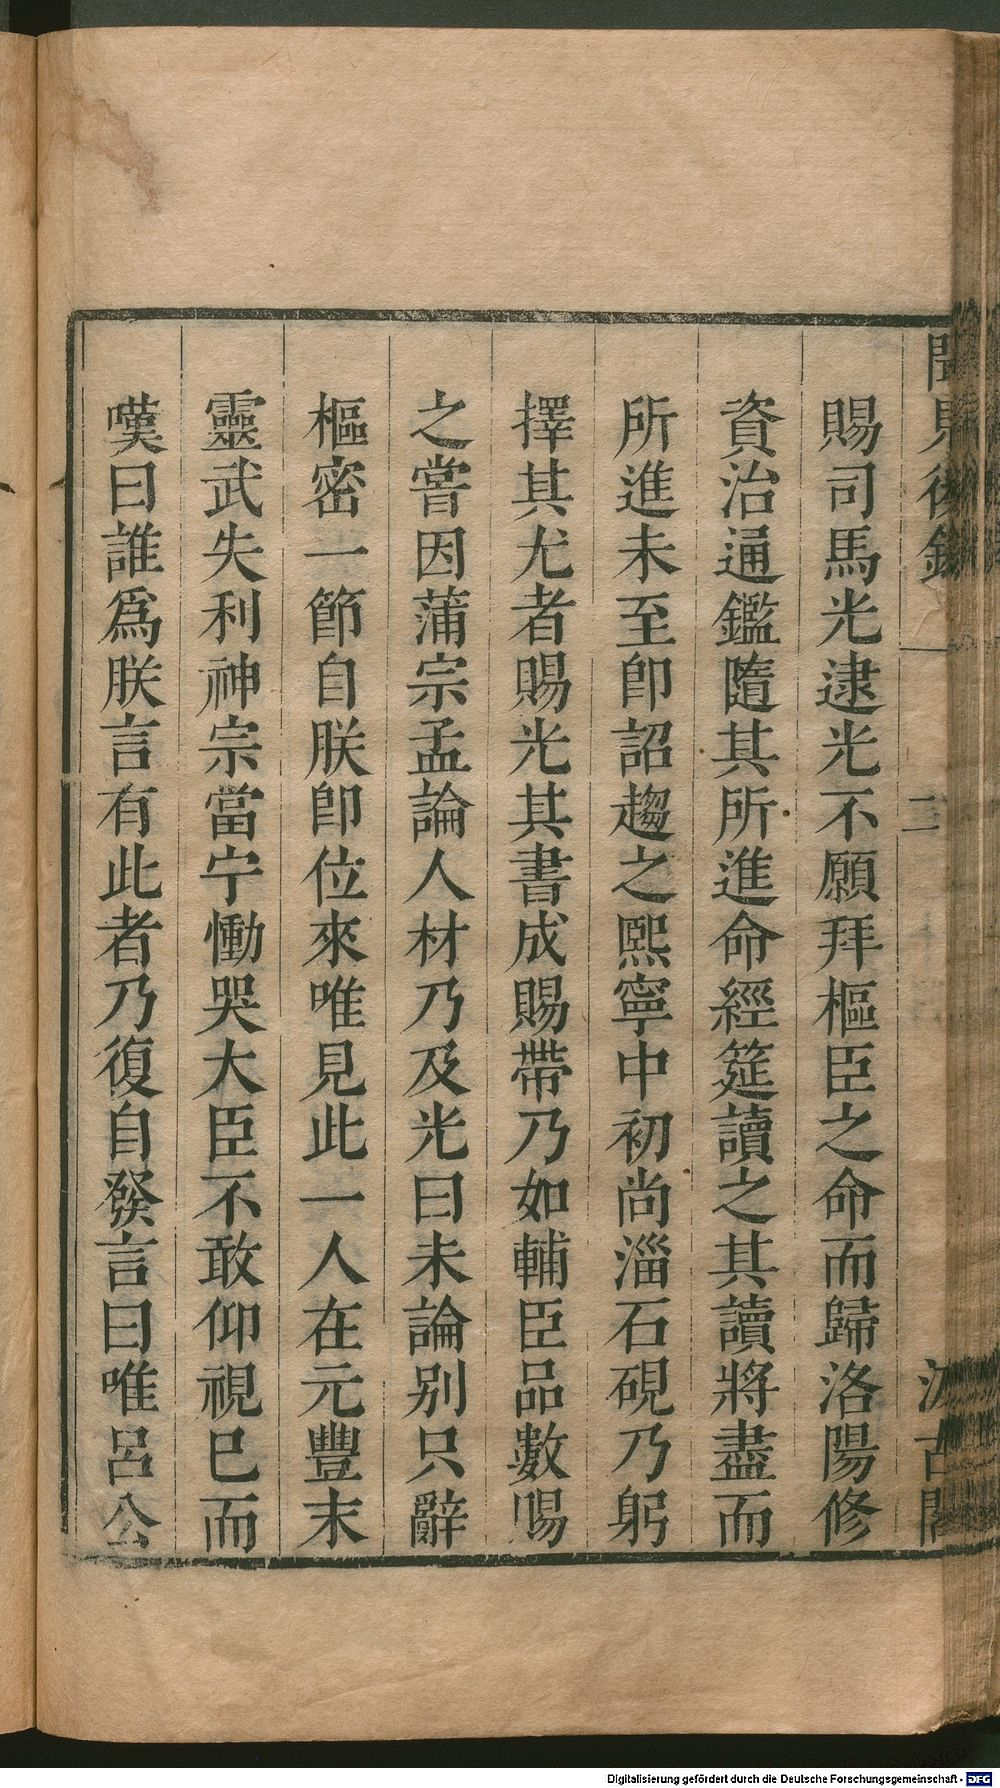 聞見後錄
二
汲古閣
賜司馬光逮光不願拜樞臣之命而歸洛陽修
資治通鑑隨其所進命經筵讀之其讀將盡而
所進未至卽詔趨之熙寧中初尚淄石硯乃躬
擇其尤者賜光其書成賜帶乃如輔臣品數賜
之嘗因蒲宗孟論人材乃及光曰未論别只辭
樞密一節自朕卽位來唯見此一人在元豐末
靈武失利神宗當宁慟哭大臣不敢仰視已而
嘆曰誰爲朕言有此者乃復自發言曰唯呂公
Digitalisierung gefördert durch die Deutsche Forschungsgemeinschaft - DFG